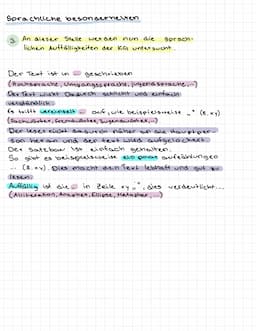 Sprachliche besonderheiten
5. An dieser Stelle werden nun die sprach-
lichen Auffälligkeiten der KG untersucht.
Der Text ist in … geschrieben
(Hochsprache, Umgangssprache, Jugendsprache,...)
Der Text wirkt dadurch schlicht und einfach
verständlich.
Es tritt vereinzelt … auf, wie beispielsweise „" (Z. xy)
(Fachwörter, Fremdwörter, Jugendwörter,...)
Der leser rückt dadurch näher an die Hauptper-
son heran und der text wird aufgelockert.
Der Satzbau ist einfach gehalten.
So gibt es beispielsweise ein paar aufzählungen
... (Z. xy). Dies macht den Text lebhaft und gut zu
lesen.
Auffällig ist die … in Zeile xy „", dies verdeutlicht...
(Alliteration, Anapher, Ellipse, Metapher,...)